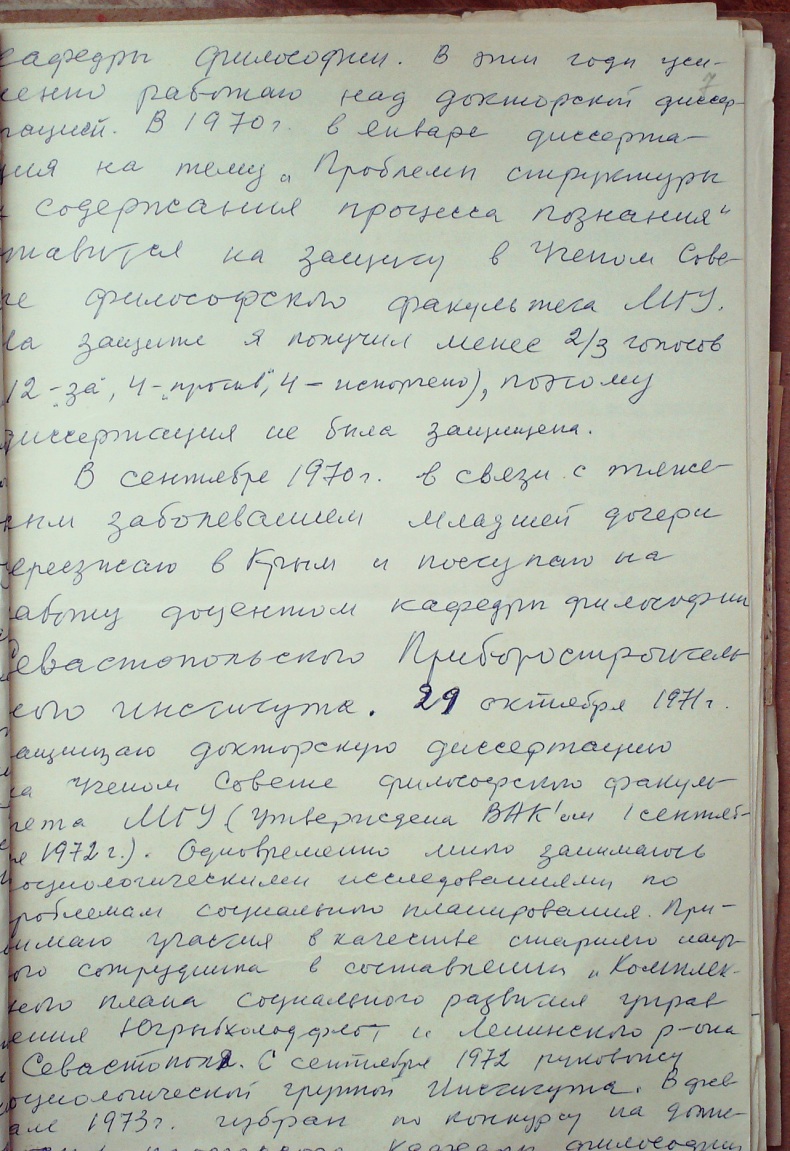 кафедры философии. В эти годы уси-
ленно работаю над докторской диссер-
7
тацией. В 1970г. в январе диссерта-
ция на тему „Проблемы структуры
и содержания процесса познания“
ставится на защиту в Ученом Сове-
те философского факультета МГУ.
На защите я получил менее 2/3 голосов
(12 - „за“, 4 - „против“, 4 - испорчено), поэтому
диссертация не была защищена.
В сентябре 1970г. в связи с тяже-
лым заболеванием младшей дочери
переезжаю в Крым и поступаю на
работу доцентом кафедры философии
Севастопольского Приборостроитель-
ного института. 29 октября 1971г.
защищаю докторскую диссертацию
на Ученом Совете философского факуль-
тета МГУ (Утверждена ВАК'ом 1 сентяб-
ря 1972г.). Одновременно много занимаюсь
социологическими исследованиями по
проблемам социального планирования. При-
нимаю участия в качестве старшего науч-
ного сотрудника в составлении „Комплек-
сного плана социального развития управ
ления Югрыбхолодфлот и Ленинского р-она
Севастополя. С сентября 1972 руковожу
социологической группой Института. В фев
рале 1973г. избран по конкурсу на долж-
кафедры философии